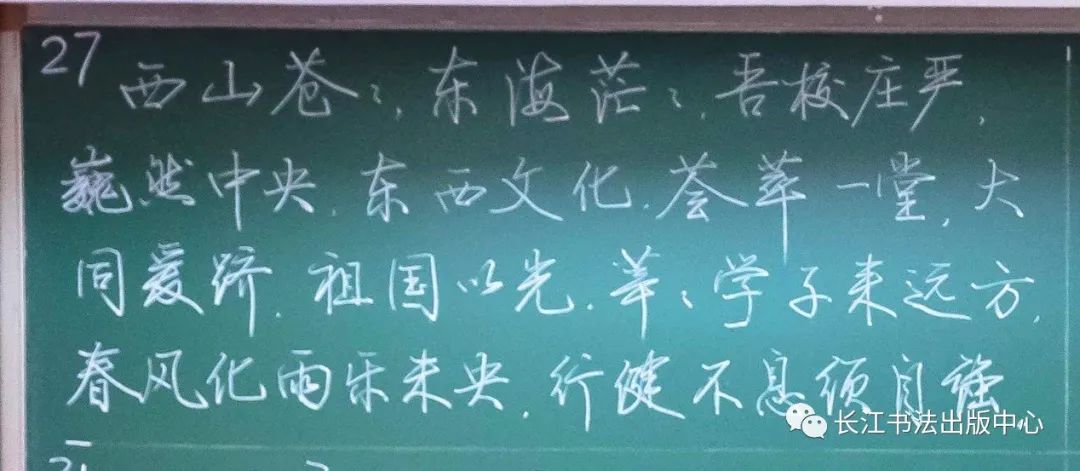 27
西山苍々,东海茫々,吾校庄严,
巍然中央.东西文化.荟萃一堂,大
同爰跻.祖国以光.莘々学子来远方,
春风化雨乐未央,行健不息须自强.
长江书法出版中心